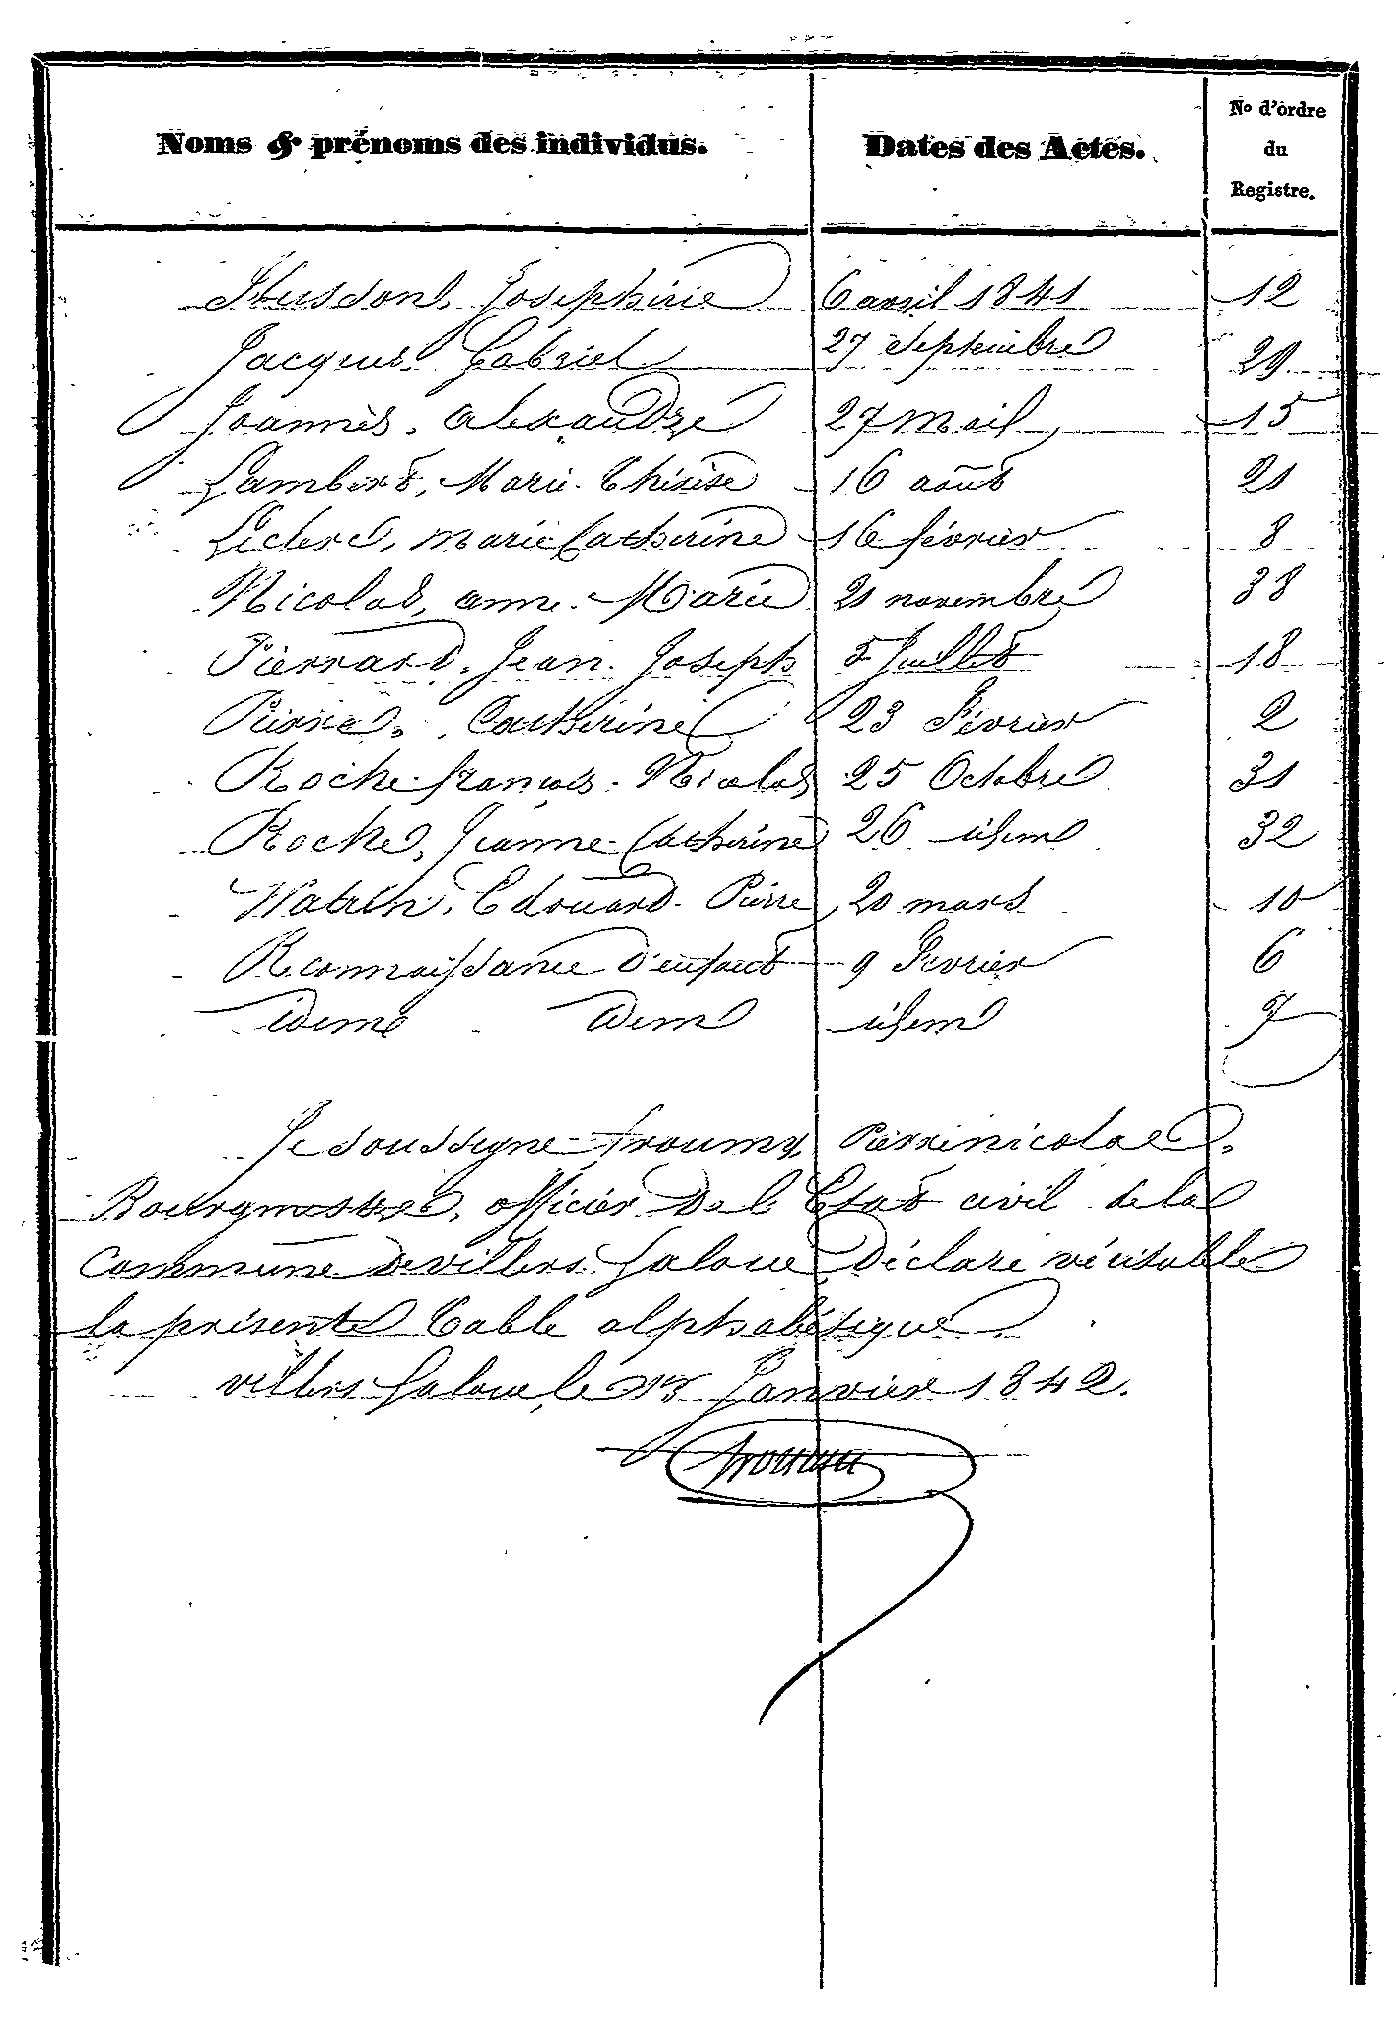 Noms & prénoms des individus. Dates des Actes. No d'ordre du Registre.
Josephine 6 avril 1841 12
Jacques Gabriel 27 Septembre 29
Joannès, alexandre 27 Mail 15
Lambert, Marie Thérèse 16 août 21
Leclere, marie Catherine 16 février 8
Nicolas, anne Marie 21 novembre 38
Pierrard, Jean Joseph 5 Juillet 18
Pierre, Catherine 23 Février 2
Roche françois Nicolas 25 Octobre 31
Roche, Jeanne Catherine 26 idem 32
Watrin, Edouard Pierre 20 mars 10
Reconnaissance d'enfant 9 Fevrier 6
idem idem idem 7
Je soussigne Pierre nicolas
Bourgmestre, officier de l Etat civil de la
Commune de villers la loue Déclare véritable
la présente table alphabétique
villers la loue, le Janvier 1842.